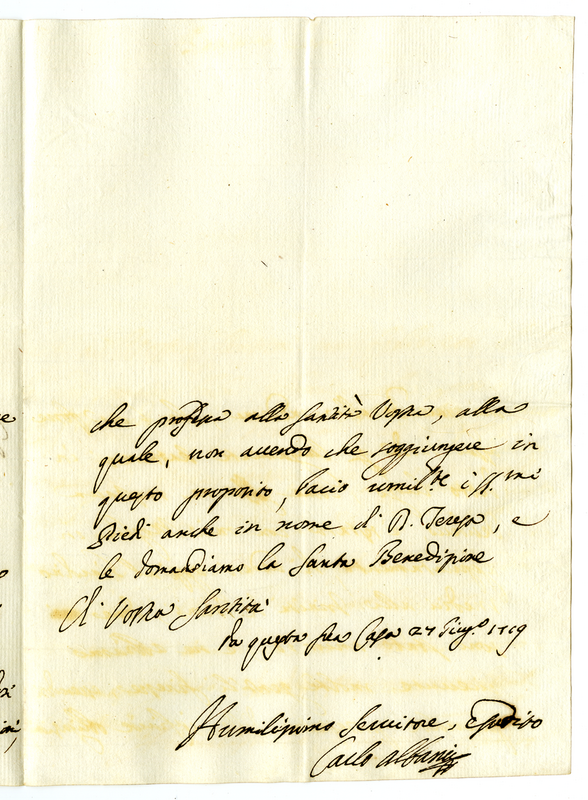 che professa alla Santità Vostra, alla
quale, non avendo che soggiungere in
questo proposito, bacio umil.te i SS.mi
Piedi anche in nome di D. Teresa, e
le domandiamo la Santa Benedizione
Di Vostra Santità
Da questa sua Casa 27 Giug.o 1719
Humilissimo Servitore, e suddito
Carlo Albani